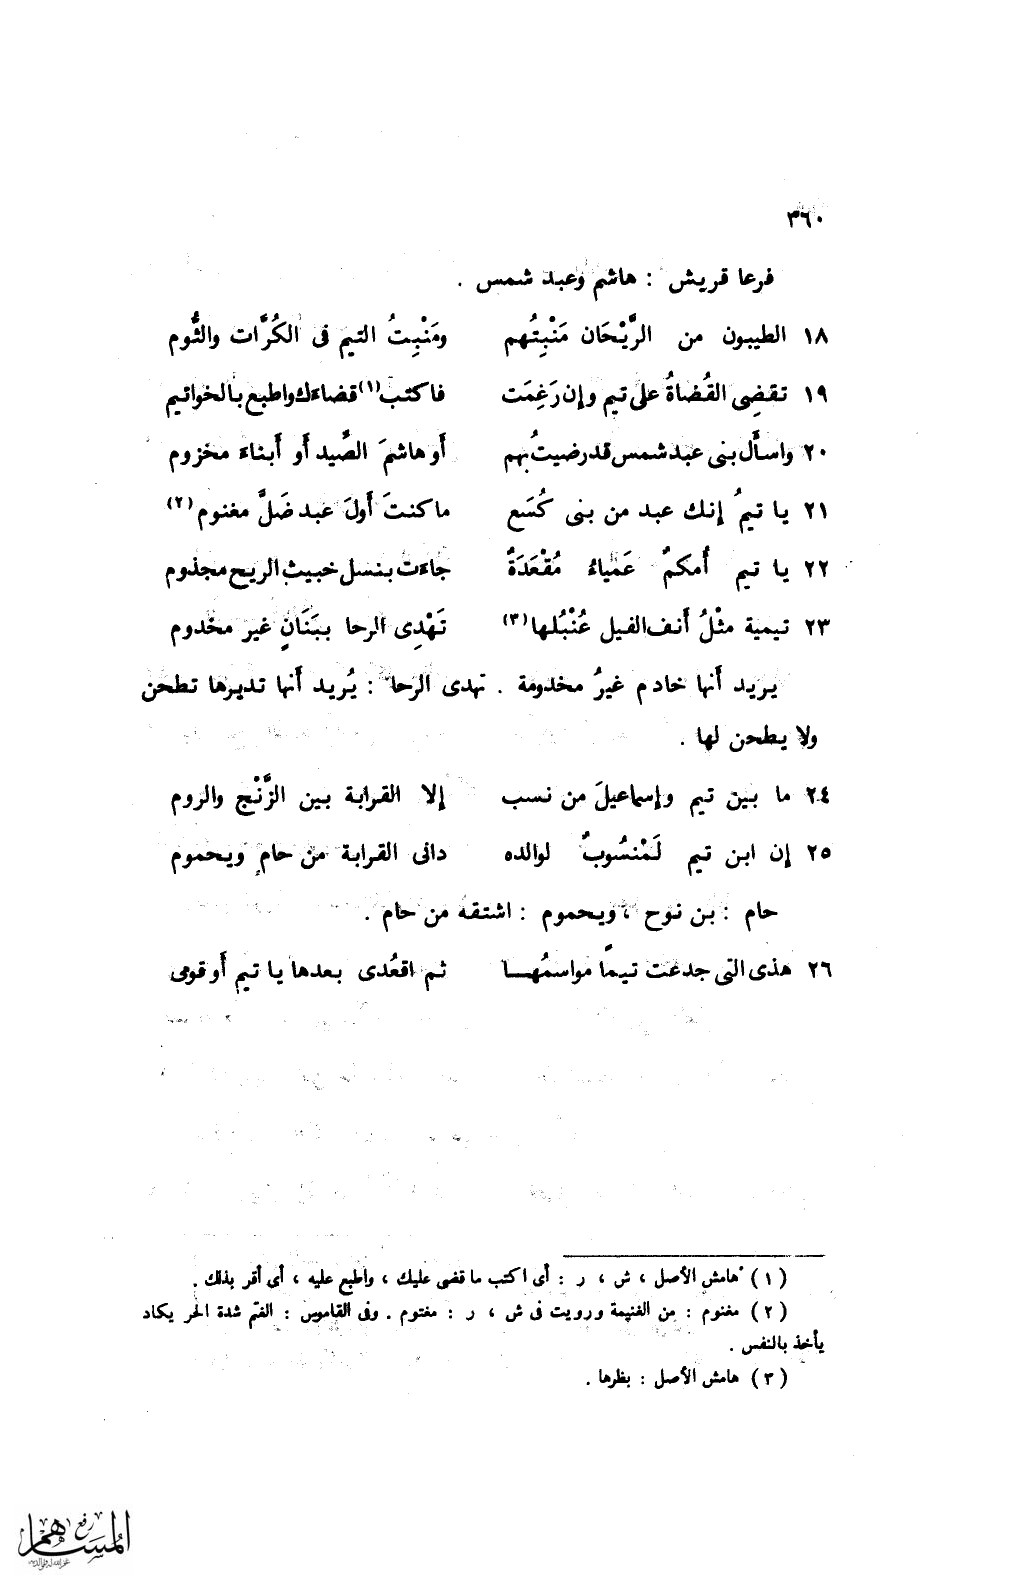 ٣٦٠
فرعا قريش : هاشم وعبد شمس .
١٨ الطيبون من الرَّيْحَان مَنْبِتُهم ومَنْبِتُ التيم فى الكُرَّات والثُّوم
١٩ تقضِى القُضاةُ على تيم وإن رَغِمَت فاكتب(١) قضاءك واطبع بالخواتيم
٢٠ واسأل بنى عبد شمس قد رضيتُ بهم أو هاشمَ الصِّيد أو أبناء مخزوم
٢١ يا تيمُ إنك عبد من بنى كُسَع ما كنتَ أولَ عبد ضَلَّ مغنوم(٢)
٢٢ يا تيم أُمكمُ عَمْياءُ مُقْعَدَةٌ جاءت بنسل خبيث الريح مجذوم
٢٣ تيمية مثْلُ أنف الفيل عُنْبُلها(٣) تَهْدِى الرحا ببَنَانٍ غير مخدوم
يريد أنها خادم غيرُ مخدومة . تهدى الرحا : يُريد أنها تديرها تطحن
ولا يطحن لها .
٢٤ ما بين تيم وإسماعيلَ من نسب إلا القرابة بين الزَّنْج والروم
٢٥ إن ابن تيم لَمْنسُوبٌ لوالده دانى القرابة من حامٍ ويحموم
حام : بن نوح ، ويحموم : اشتقه من حام .
٢٦ هذى التى جدعت تيماً مواسمُهـا ثم اقعُدى بعدها يا تيم أو قومى
(١) هامش الأصل ، ش ، ر : أى اكتب ما قضى عليك ، واطبع عليه ، أى أقر بذلك .
(٢) مغنوم : من الغنيمة ورويت فى ش ، ر : مغتوم . وفى القاموس : الغتم شدة الحر يكاد
يأخذ بالنفس .
(٣) هامش الأصل : بظرها .
رفع
المساهم